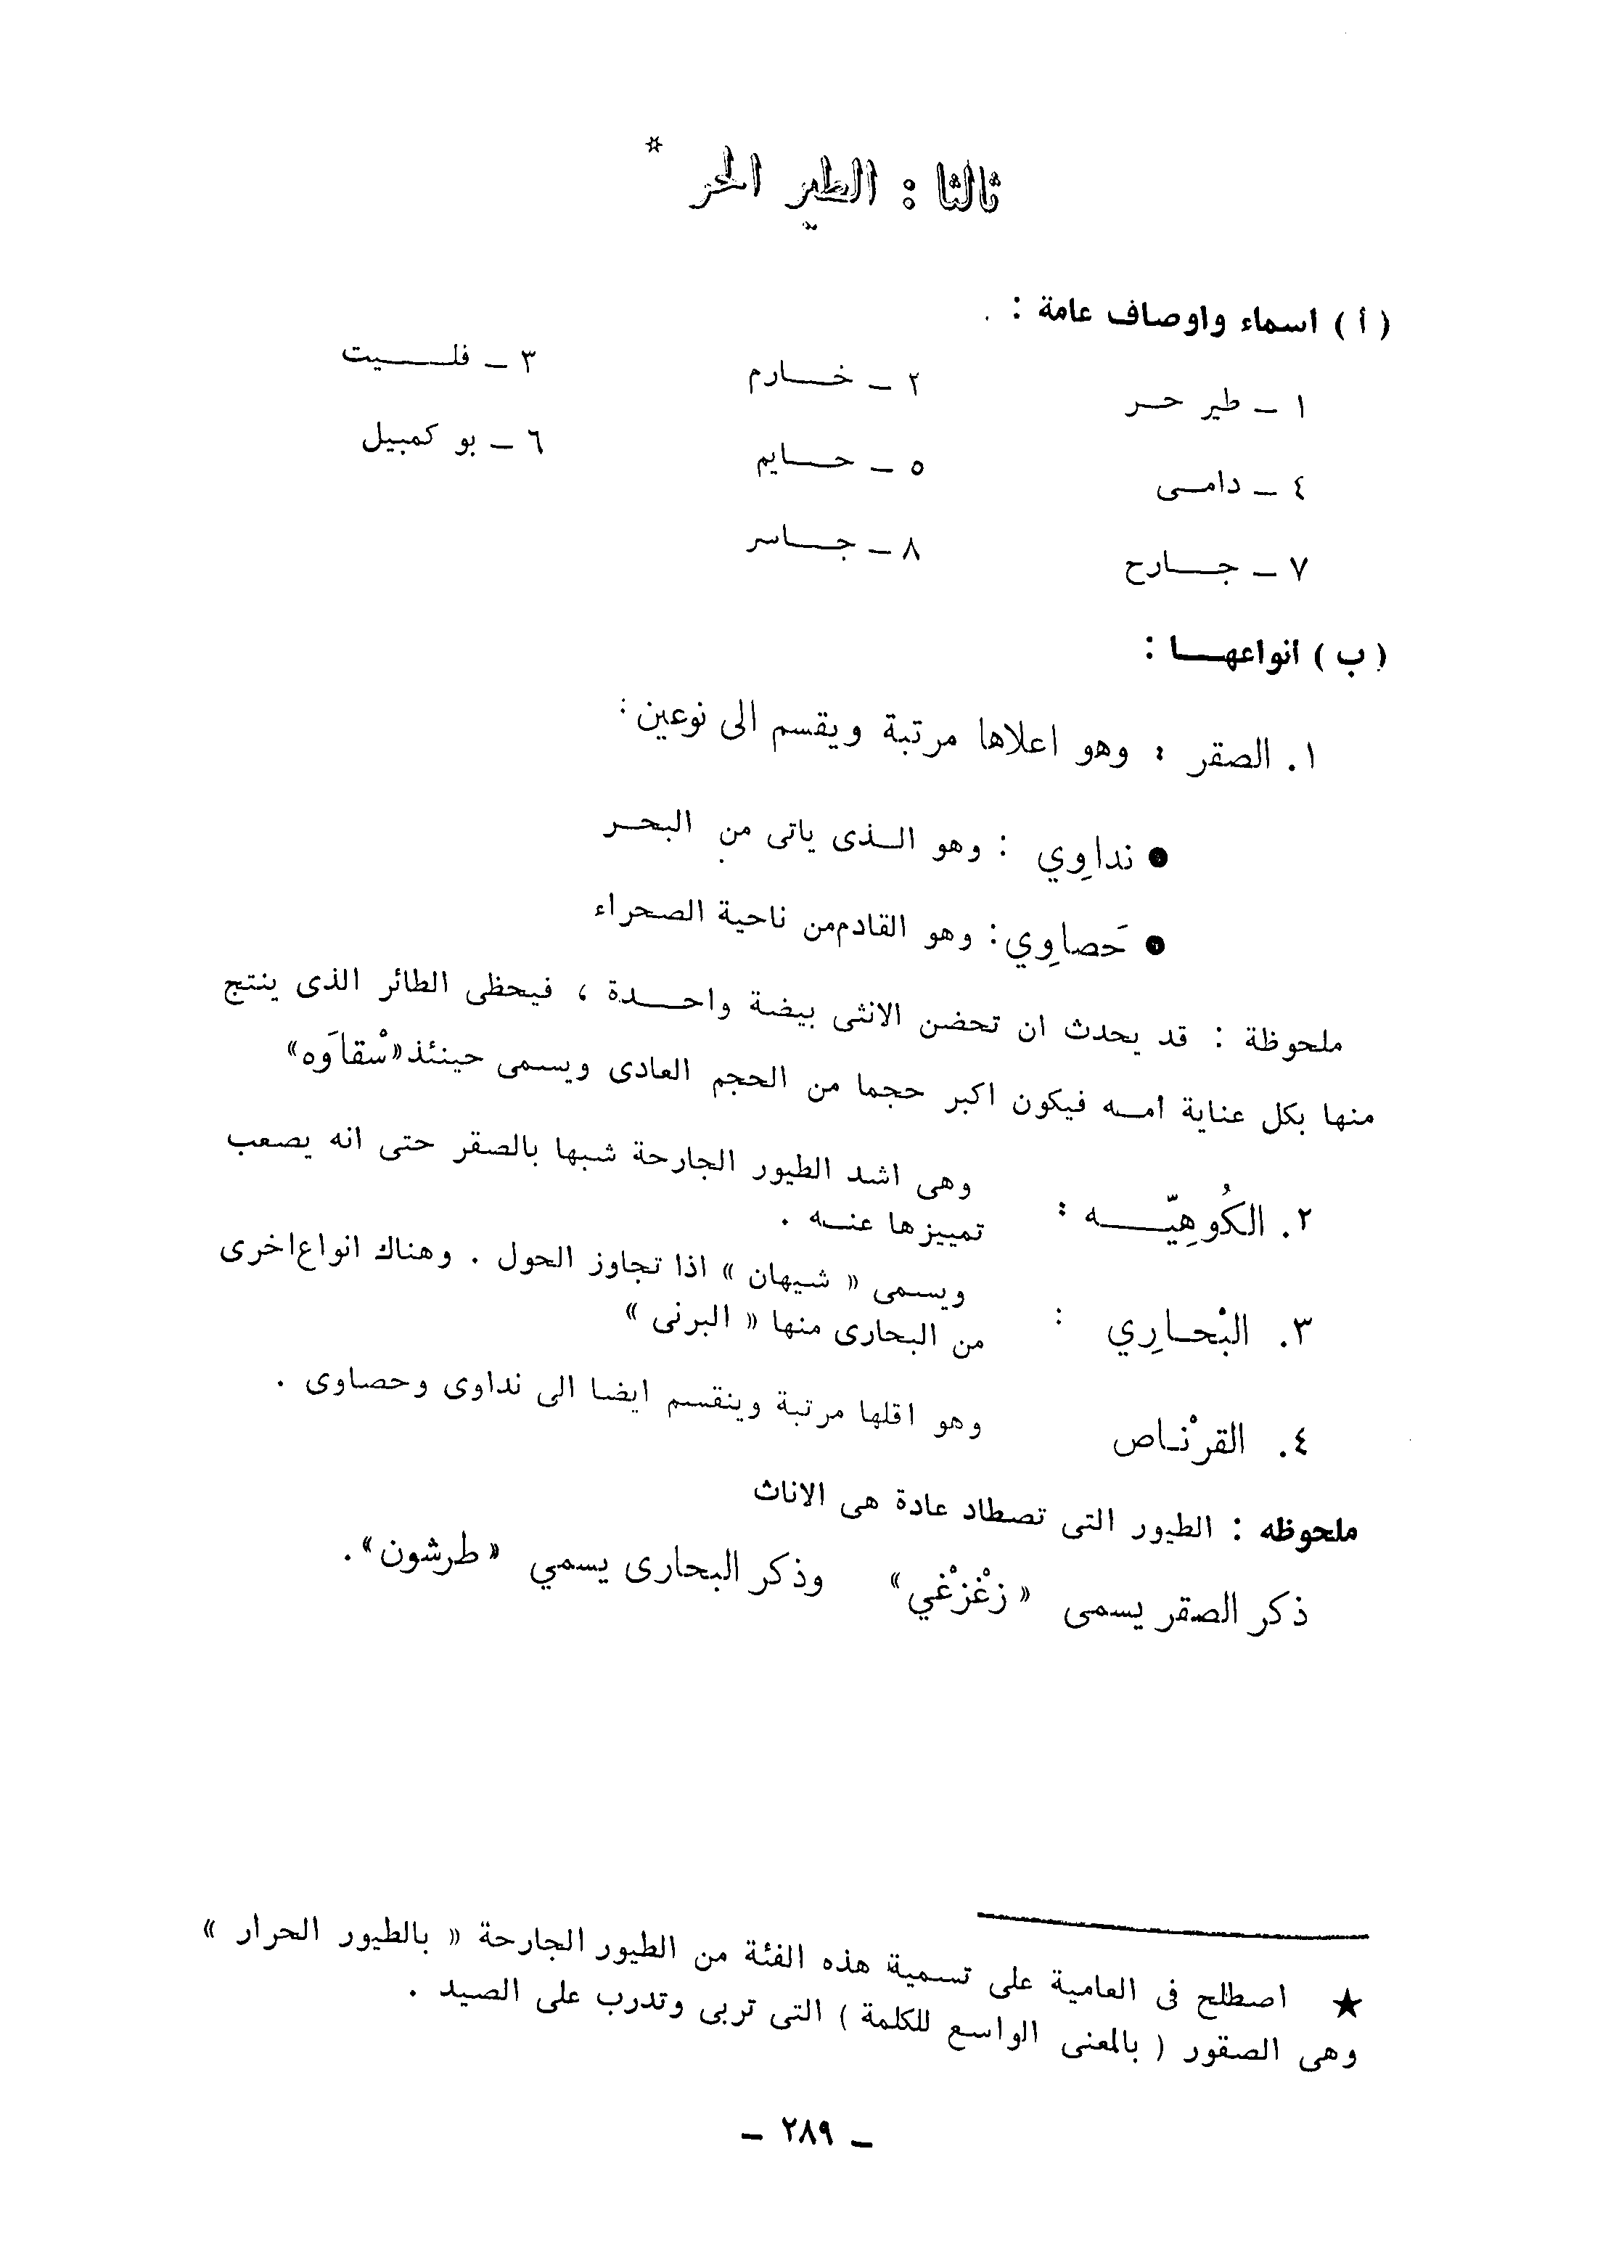 ثالثا : الطير الحر *
( أ ) اسماء واوصاف عامة :
١ ــ طير حـر ٢ ــ خـارم ٣ ــ فلــيت
٤ ــ دامـى ٥ ــ حـايم ٦ ــ بو كمبيل
٧ ــ جـارح ٨ ــ جـاسر
( ب ) انواعهـا :
١. الصقر : وهو اعلاها مرتبة ويقسم الى نوعين :
● نداوِي : وهو الـذى ياتى من البحـر
● حَصاوِي : وهو القادم من ناحية الصحراء
ملحوظة : قد يحدث ان تحضن الانثى بيضة واحـدة ، فيحظى الطائر الذى ينتج
منها بكل عناية امـه فيكون اكبر حجما من الحجم العادى ويسمى حينئذ «سْقاوَه»
٢. الكُوهِيّـه : وهى اشد الطيور الجارحة شبها بالصقر حتى انه يصعب
تمييزها عنـه .
٣. البْحـارِي : ويسمى « شيهان » اذا تجاوز الحول . وهناك انواع اخرى
من البحارى منها « البرنى »
٤. القرْنـاص وهو اقلها مرتبة وينقسم ايضا الى نداوى وحصاوى .
ملحوظه : الطيور التى تصطاد عادة هى الاناث
ذكر الصقر يسمى « زْغزْغي » وذكر البحارى يسمي « طرشون » .
★ اصطلح فى العامية على تسمية هذه الفئة من الطيور الجارحة « بالطيور الحرار »
وهى الصقور ( بالمعنى الواسع للكلمة ) التى تربى وتدرب على الصيد .
ــ ٢٨٩ ــ